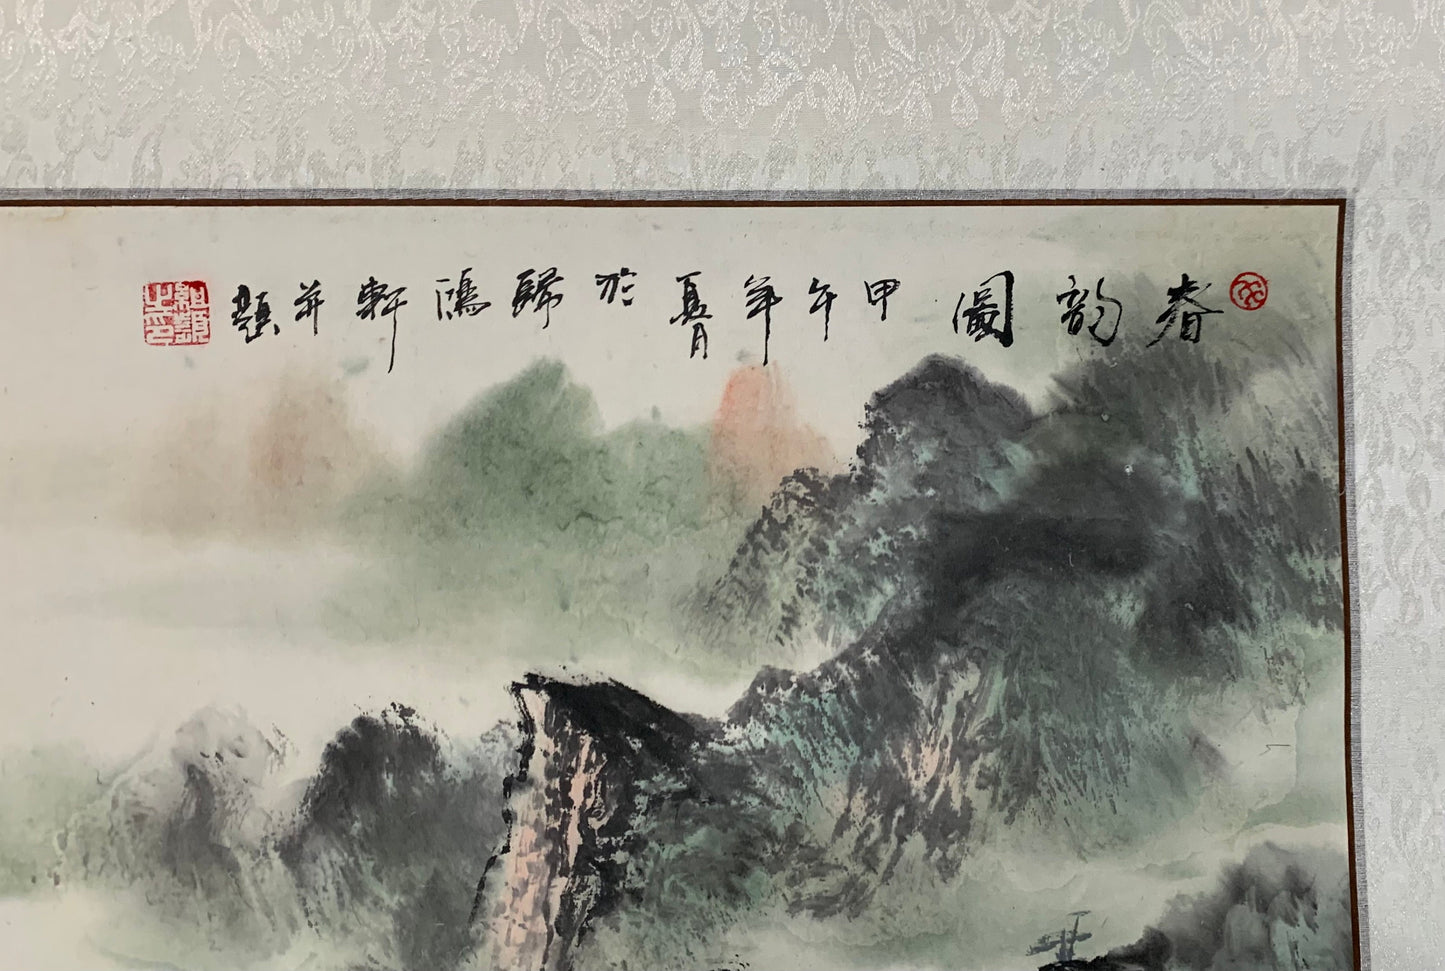 春韵圖 甲午年夏月於歸鴻軒並題